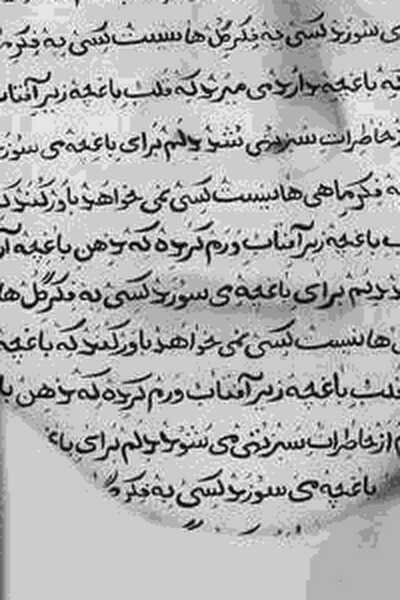 سوزد کسی به فکر گل ها نیست کسی به فکر
که باغچه دارد می میرد که قلب باغچه زیر آفتاب
از خاطرات سبز تهی می شود دلم برای باغچه ی سوز
به فکر ماهی ها نیست کسی نمی خواهد باور کند ک
باغچه زیر آفتاب ورم کرده که ذهن باغچه آر
دلم برای باغچه می سوزد کسی به فکر گل ها
ها نیست کسی نمی خواهد باور کند که باغچه
قلب باغچه زیر آفتاب ورم کرده که ذهن با
از خاطرات سبز تهی می شود دلم برای باغ
باغچه می سوزد کسی به فکر گ